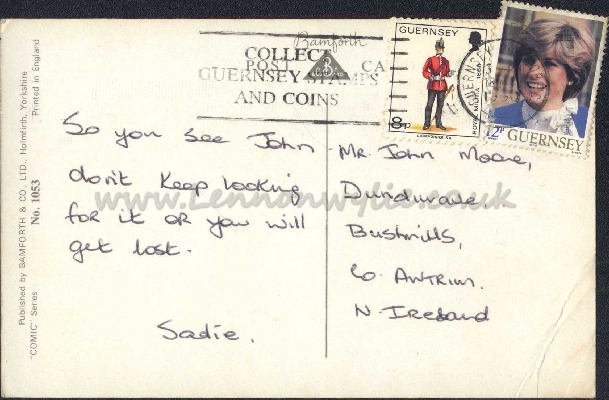 Bamforth
COLLECT
POST CA
GUERNSEY STAMPS
AND COINS
GUERNSEY
8p
ROYAL MILITIA 1868
12p GUERNSEY
So you see John
don't keep looking
for it or you will
get lost.
Sadie.
Mr. John Moore,
Dundurave,
Bushmills,
Co. Antrim.
N. Ireland
Published by BAMFORTH & CO., LTD., Holmfirth, Yorkshire
"COMIC" Series
No. 1053
Printed in England
www.Lennonwylie.co.uk